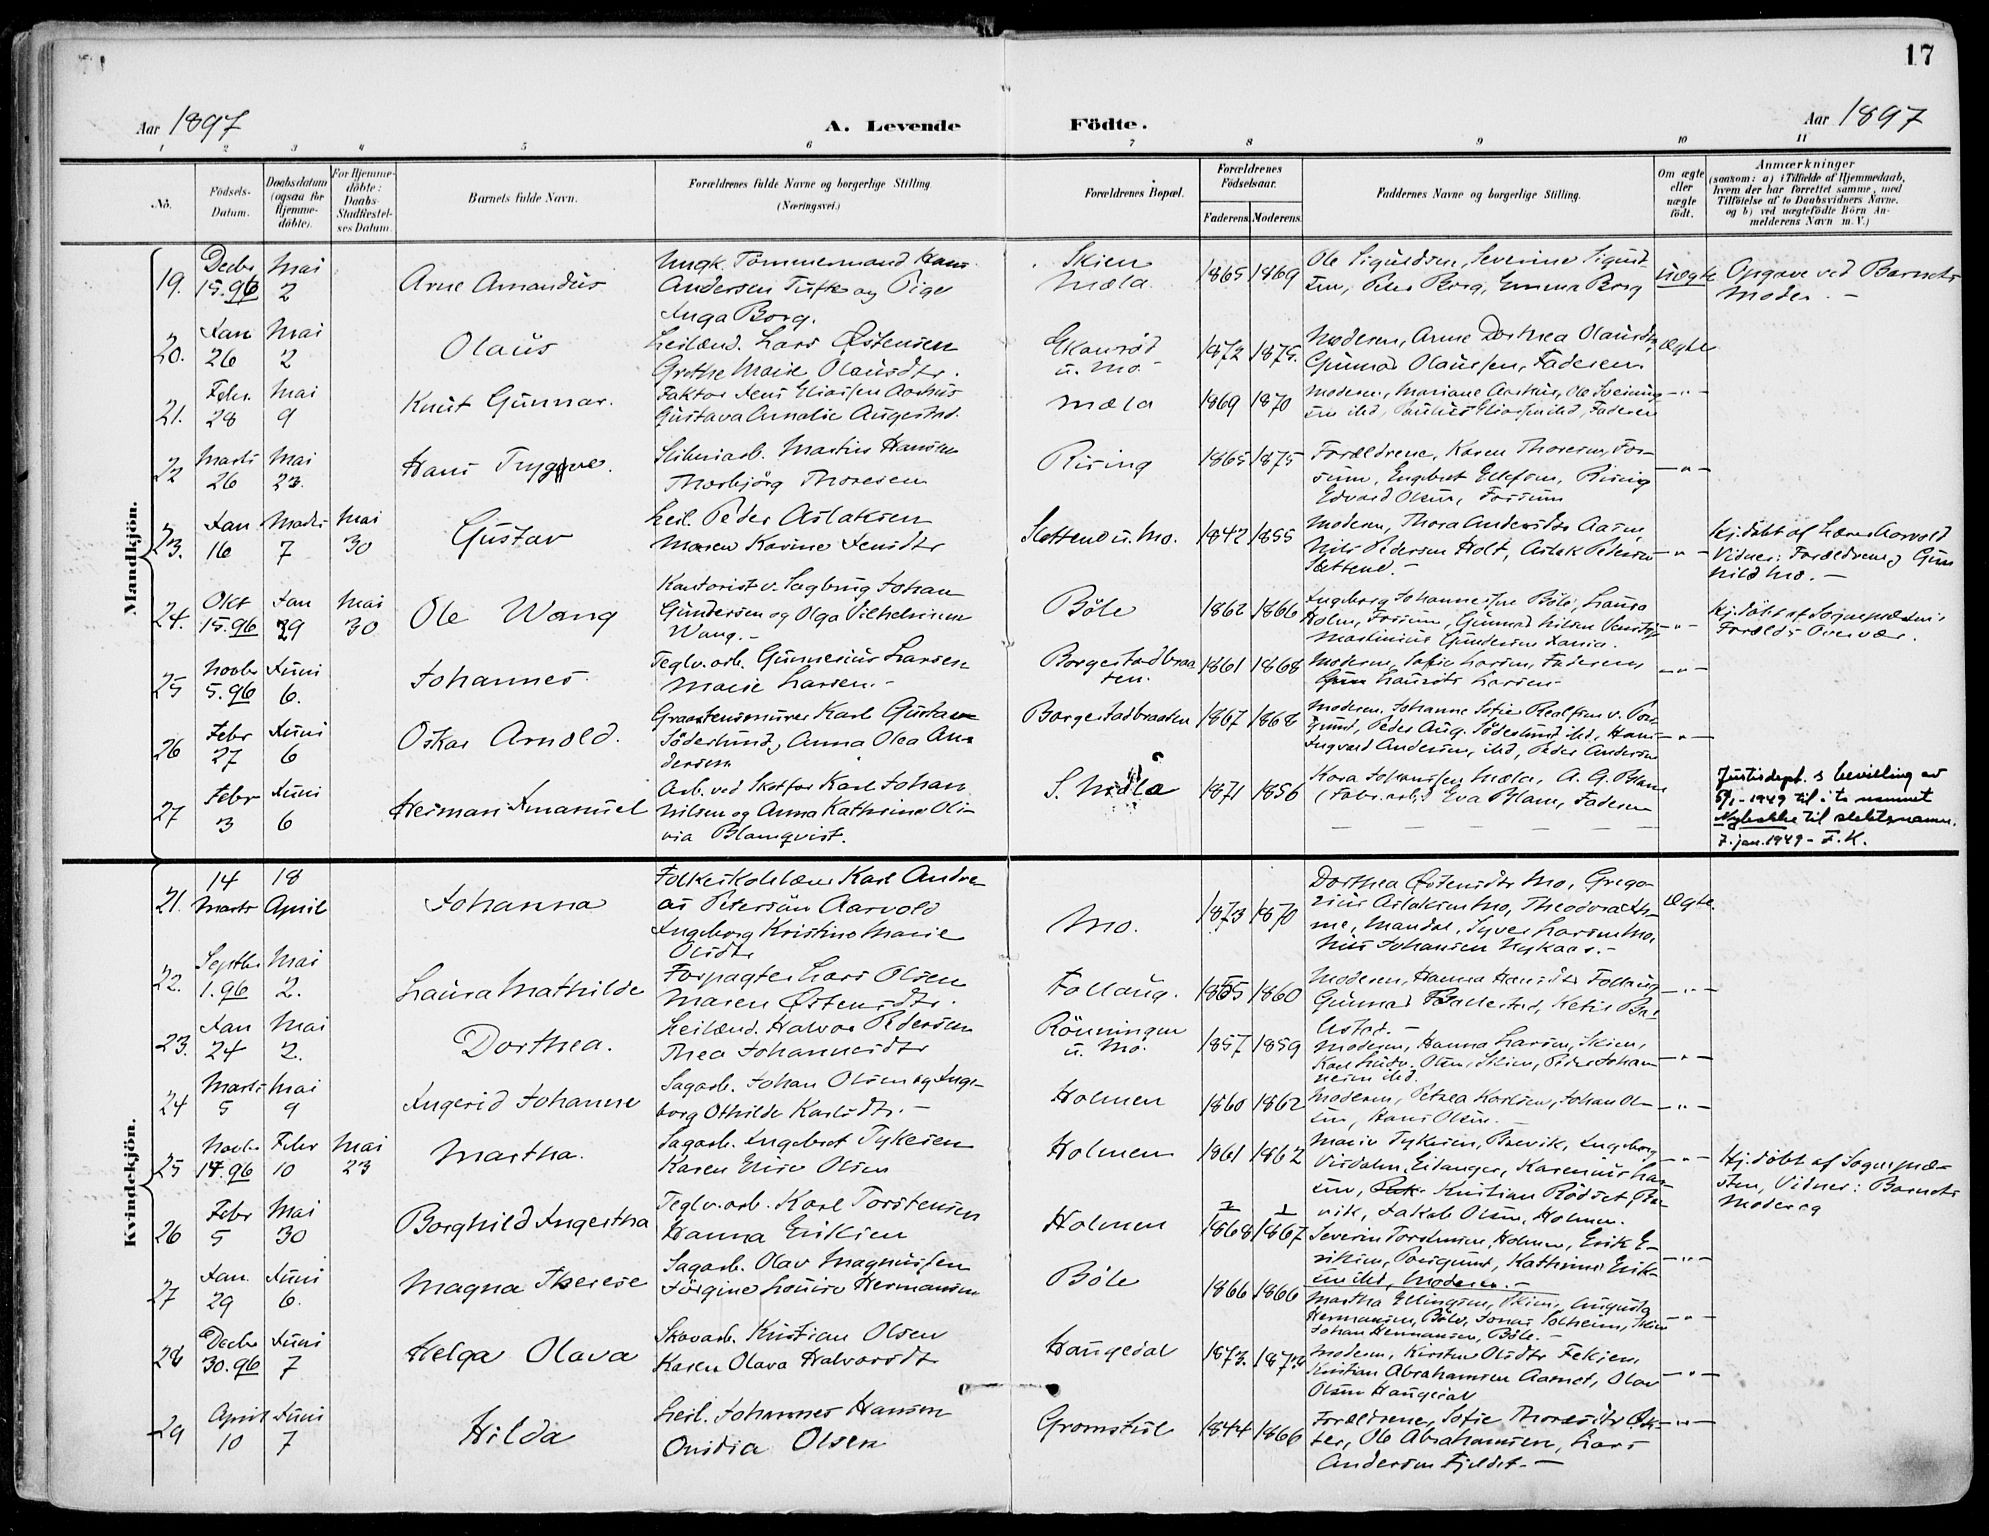 17
Aar 1897
A. Levende Födte.
Aar 1897
1 2 3 4 5 6 7 8 9 10 11
No.
Födsels-
Datum.
Daabsdatum
(ogsaa for
Hjemme-
döbte).
For Hjemme-
döbte:
Daabs-
Stadfæstel-
ses Datum.
Barnets fulde Navn.
Forældrenes fulde Navne og borgerlige Stilling.
(Næringsvei.)
Forældrenes Bopæl.
Forældrenes
Födselsaar.
Faderens.
Moderens.
Faddernes Navne og borgerlige Stilling.
Om ægte
eller
uægte
födt.
Anmærkninger
(saasom: a) i Tilfælde af Hjemmedaab,
hvem der har forrettet samme, med
Tilföielse af to Daabsvidners Navne.
og b) ved uægtefödte Börn An-
melderens Navn m. V.)
Mandkjön.
19.
Decbr
15.96
Mai
2
Arne Amandus
Ungk. Tömmermand Hans
Andersen Tufte og Pige
Inga Borg.
Skien
Mæla.
1865
1869
Ole Sigurdsen, Severine Sigurd-
sen, Peter Borg, Emma Borg
uægte
Opgave ved Barnets
Moder. —
20.
Jan
26
Mai
2
Olaus
Leilænd. Lars Östensen
Grethe Marie Olausdtr.
Ekonröd
u. Mo.
1872
1875.
Moderen, Anne Dorthea Olausdtr,
Gunnar Olaussen, Faderen
Ægte
21.
Febr.
28
Mai
9
Knut Gunnar.
Faktor Jens Eliassen Aarhus
Gustava Amalie Augestad.
Mæla
1869
1870
Moderen, Mariane Aarhus, Ole Sveinung-
sen ibd, Paulus Eliassen ibd, Faderen
— " —
22
Marts
26
Mai
23.
Hans Tryggve.
Sliberiarb. Martin Hansen
Thorbjörg Thoresen
Rising
1865
1875
Forældrene, Karen Thoresen, Fos-
sum, Engebret Ellefsen, Rising
Edvard Olsen, Fossum
— " —
23.
Jan
16
Marts
7
Mai
30
Gustav
Leil. Peder Aslaksen
Maren Karine Jensdtr
Slettene u. Mo.
1842
1855
Moderen, Thora Andersdtr Aasen,
Nils Pedersen Holt, Aslak Pedersen
Slettene. —
— " —
Hj.döbt af Lærer Aarvold
Vidner: Forældrene, Gun
hild Mo. —
24.
Okt
15.96
Jan
29
Mai
30
Ole Wang
Kontorist v. Sagbrug Johan
Gundersen og Olga Vilhelmine
Wang. —
Böle
1862
1866
Ingeborg Johannessen Böle, Laura
Holm, Fossum, Gunnar Nilsen Venstöp
Martinius Gundersen
— " —
Hj.döbt af Sognepræsten i
Forælds Overvær.
25
Novbr
5.96
Juni
6.
Johannes.
Teglv.arb. Gunnerius Larsen
Marie Larsen. —
Borgestadbraa
ten.
1861
1868
Moderen, Sofie Larsen, Faderen
Laurits Larsen
— " —
26
Febr
27
Juni
6
Oskar Arnold.
Graastensmurer Karl Gustav
Söderlund, Anna Olea An-
dersen
Borgestadbraaten
1867
1868
Moderen, Johanne Sofie Realfsen v. Pors-
grund, Peder Aug. Söderlund ibd, Hans
Ingvald Andersen, ibd, Peder Andersen
— " —
27
Febr
3
Juni
6
Herman Imanuel
Arb. ved Skotfos Karl Johan
Nilsen og Anna Kathrine Oli-
via Blomqvist.
S. Mæla
1871
1856
Kora Johanssen Mæla, A. G. Blom
(Fabr.arb.) Eva Blom, Faderen
Justisdept. s bevilling av
5/1-1949 til å ta navnet
Nybakke til slektsnavn.
7. jan. 1949 - F.K.
Kvindekjön.
21.
14
Marts
18
April
Johanna
Folkeskolelærer Karl Andre
as Petersön Aarvold
Ingeborg Kristine Marie
Olsdtr
Mo.
1873
1870
Dorthea Östensdtr Mo, Grego-
rius Aslaksen Mo, Theodora
Mandal, Syver Larsen Mo,
Nils Johansen Nykaas. —
Ægte.
22.
Septbr
1.96
Mai
2.
Laura Mathilde
Forpagter Lars Olsen
Maren Östensdtr.
Follaug.
1855
1860
Moderen, Hanna Hansdtr Follaug
Gunnar Ballestad, Ketil Bal
lestad. —
— " —
23.
Jan
24
Mai
2.
Dorthea.
Leilænd. Halvor Pedersen
Thea Johannesdtr
Rönningen
u. Mo.
1857
1859
Moderen, Hanna Larsen, Skien,
Karl Ludv. Olsen, Skien, Peder Johan
nesen ibd.
— " —
24
Marts
5
Mai
9
Ingerid Johanne
Sagarb. Johan Olsen og Inge-
borg Othilde Karlsdtr. —
Holmen
1860
1862
Moderen, Petrea Karlsen, Johan Ol-
sen, Hans Olsen. —
— " —
25
Novbr
14.96
Febr
10
Mai
23
Martha.
Sagarb. Ingebret Tykesen
Karen Elise Olsen
Holmen
1861
1862
Marie Tykesen, Brevik, Ingeborg
Virdalen, Eidanger, Karenius Lar-
sen, Kristian Rödset, Bre-
vik, Jakob Olsen, Holmen.
— " —
Hj.döbt af Sognepræ-
sten, Vidner: Barnets
Moder og
26
Febr
5
Mai
30
Borghild Ingertha
Teglv.arb. Karl Torstensen
Hanna Eriksen
Holmen
1868
1867
Severin Torstensen, Holmen, Erik E-
riksen, Porsgrund, Kathrine Erik-
sen ibd, Moderen. —
— " —
27
Jan.
29
Juni
6.
Magna Therese
Sagarb. Olav Magnussen
Jörgine Louise Hermansen
Böle
1866
1866
Martha Ellingsen, Skien, Augusta
Hermansen, Böle, Jonas Solheim, Skien
Johan Hermansen, Böle. —
— " —
28
Decbr
30.96
Juni
7
Helga Olava
Skovarb. Kristian Olsen
Karen Olava Halvorsdtr
Haugedal
1873.
1873
Moderen, Kirsten Olsdtr Fekjen,
Kristian Abrahamsen Aamot, Olav
Olsen Haugedal
— " —
29
April
10
Juni
7
Hilda
Leil. Johannes Hansen
Onidia Olsen
Gromstul
1844
1866
Forældrene, Sofie Thoresdtr
Ole Abrahamsen, Lars
Andersen Fjeldet. —
— " —